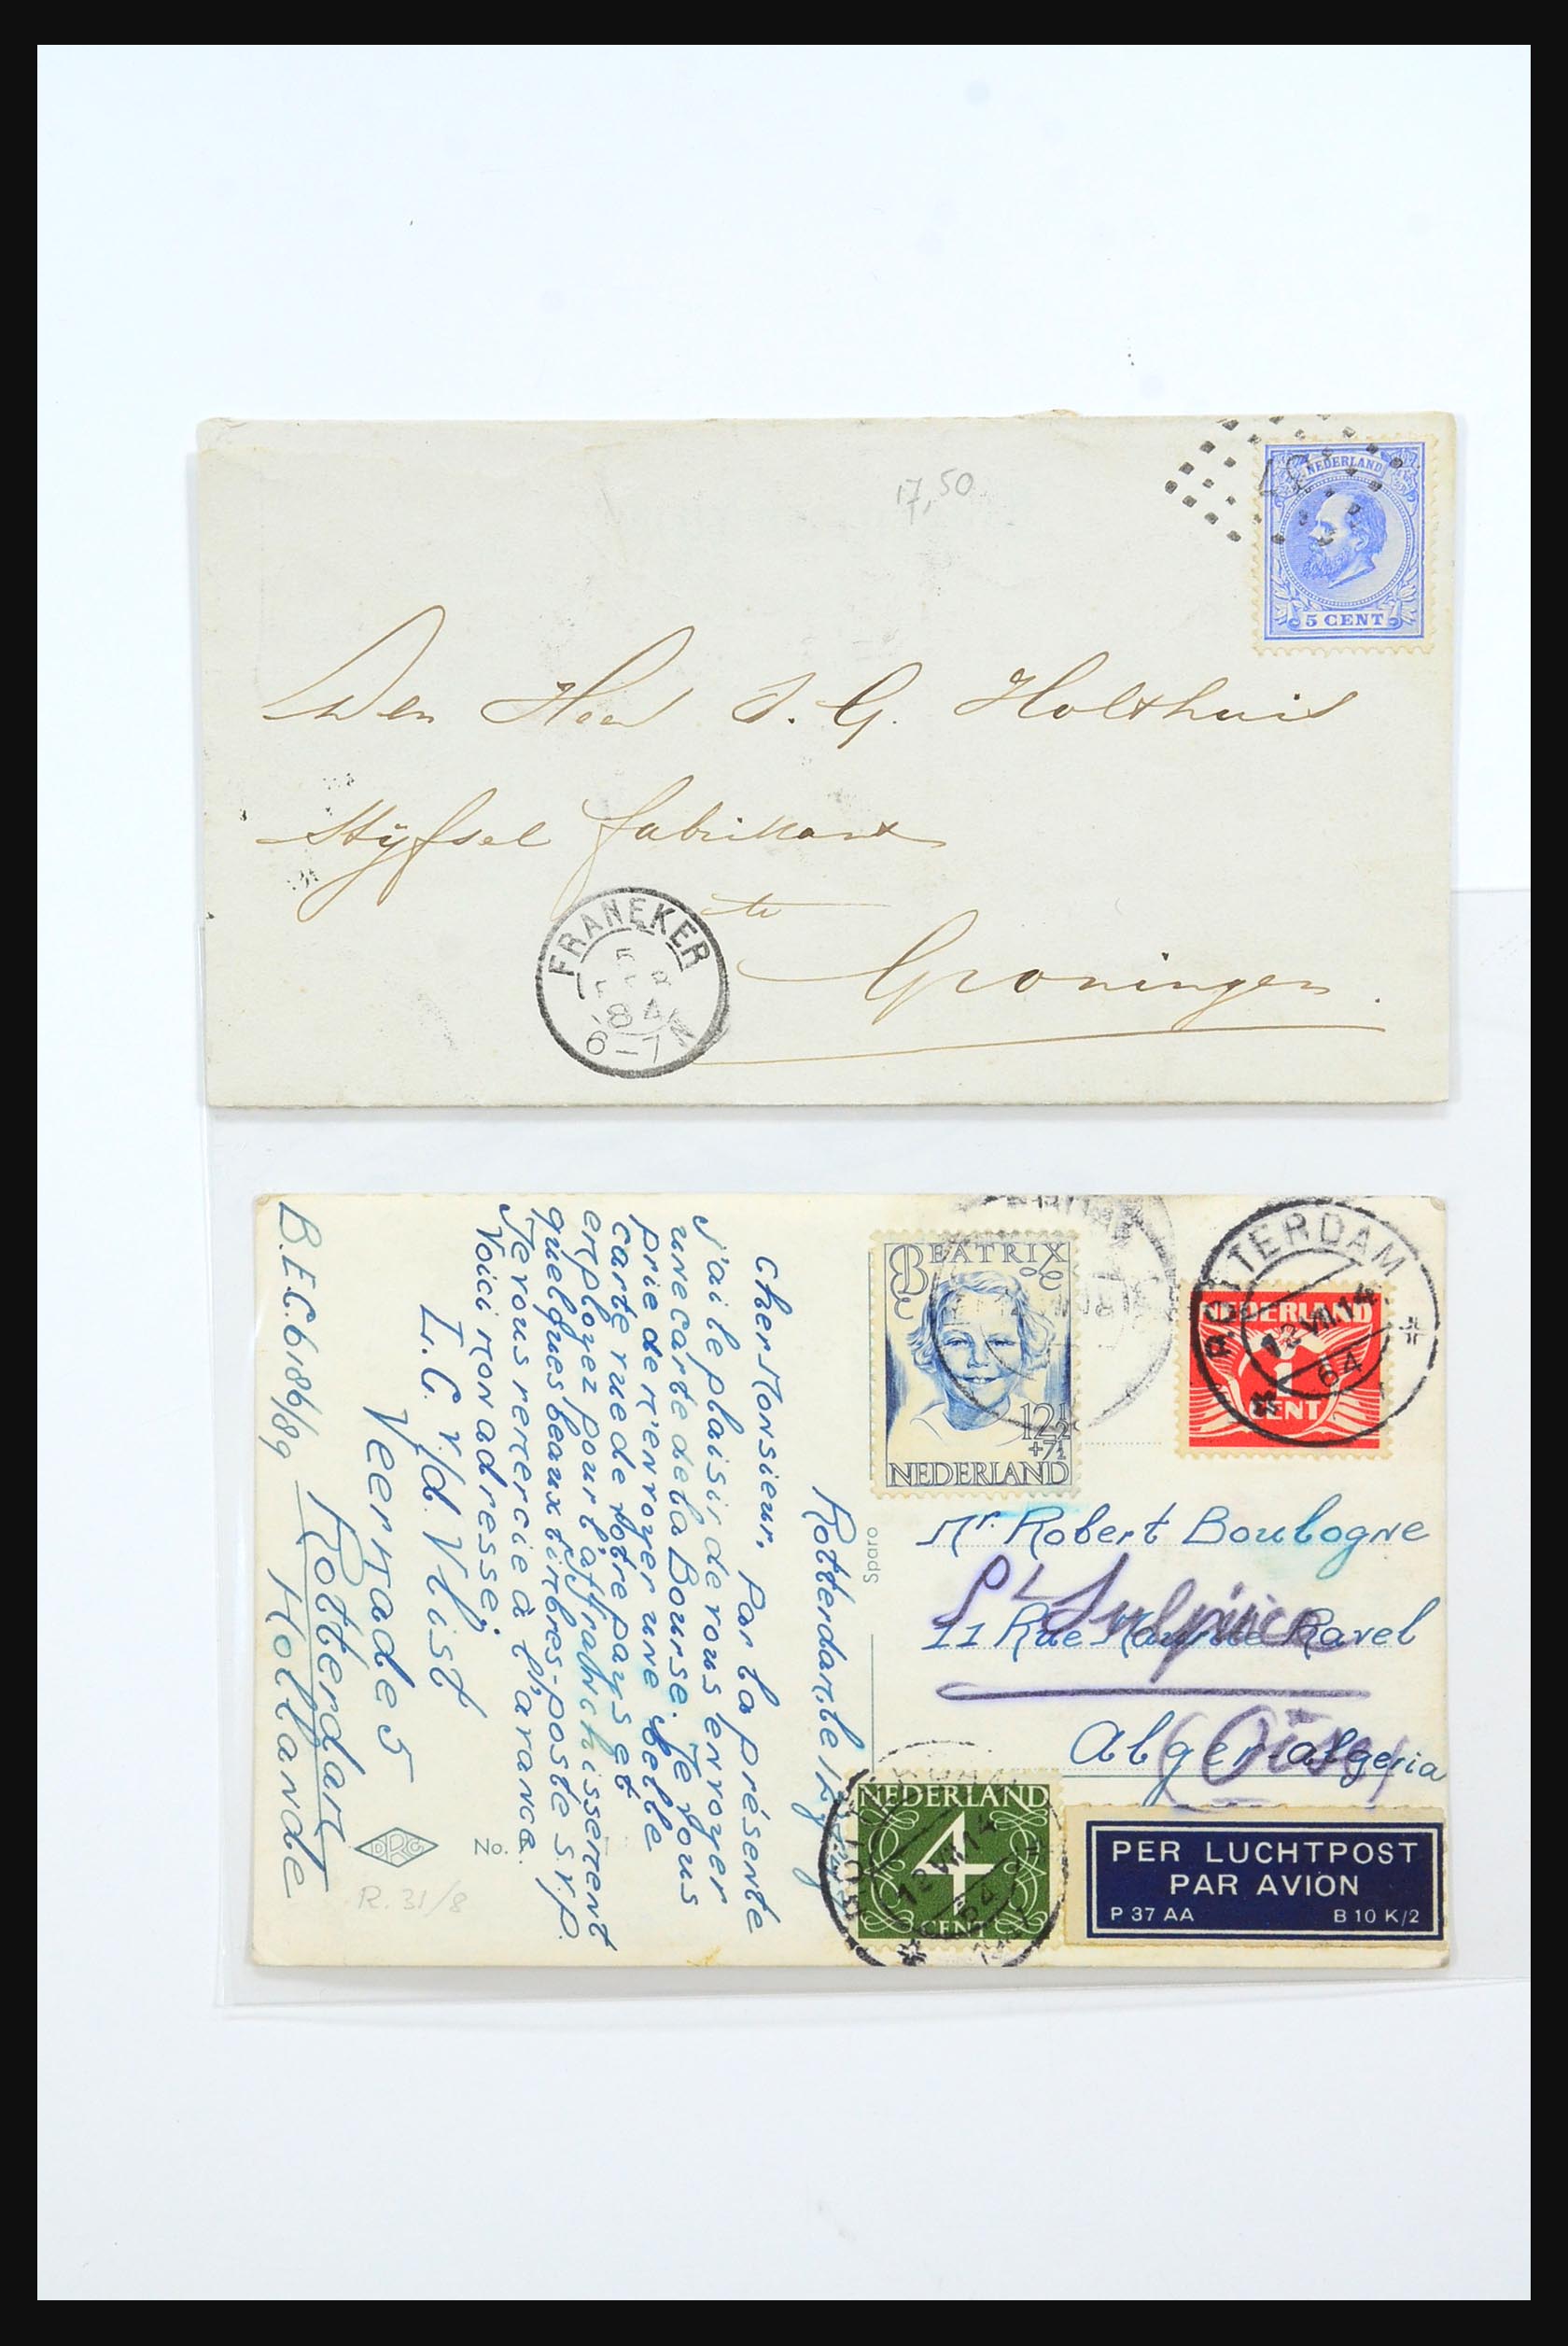 17,50
49
NEDERLAND
5 CENT
Den Heer S. G. Holthuis
Styfsel fabrikant
te
Groningen.
FRANEKER
5
84
6-7N
BEATRIX
12½
+7½
NEDERLAND
ROTTERDAM
13 VII 14
64
NEDERLAND
1
CENT
Mr. Robert Boulogne
11 Rue Maurice Ravel
Alger-algeria
St Sulpice
(Oise)
NEDERLAND
4
CENT
13 VII 14
64
PER LUCHTPOST
PAR AVION
P 37 AA B 10 K/2
Sparo
Rotterdam, le
Cher Monsieur, Par la présente
j'ai le plaisir de vous envoyer
une carte de la Bourse. Je vous
prie de m'envoyer une belle
carte vue de votre pays et
employez pour l'affranchissement
quelques beaux timbres-poste s.v.p.
Je vous remercie à l'avance.
Voici mon adresse:
L.C. v/d. Vlist
Veermade 5
Rotterdam
B.E.C. 6186/89 Hollande
DRC
No.
R. 31/8